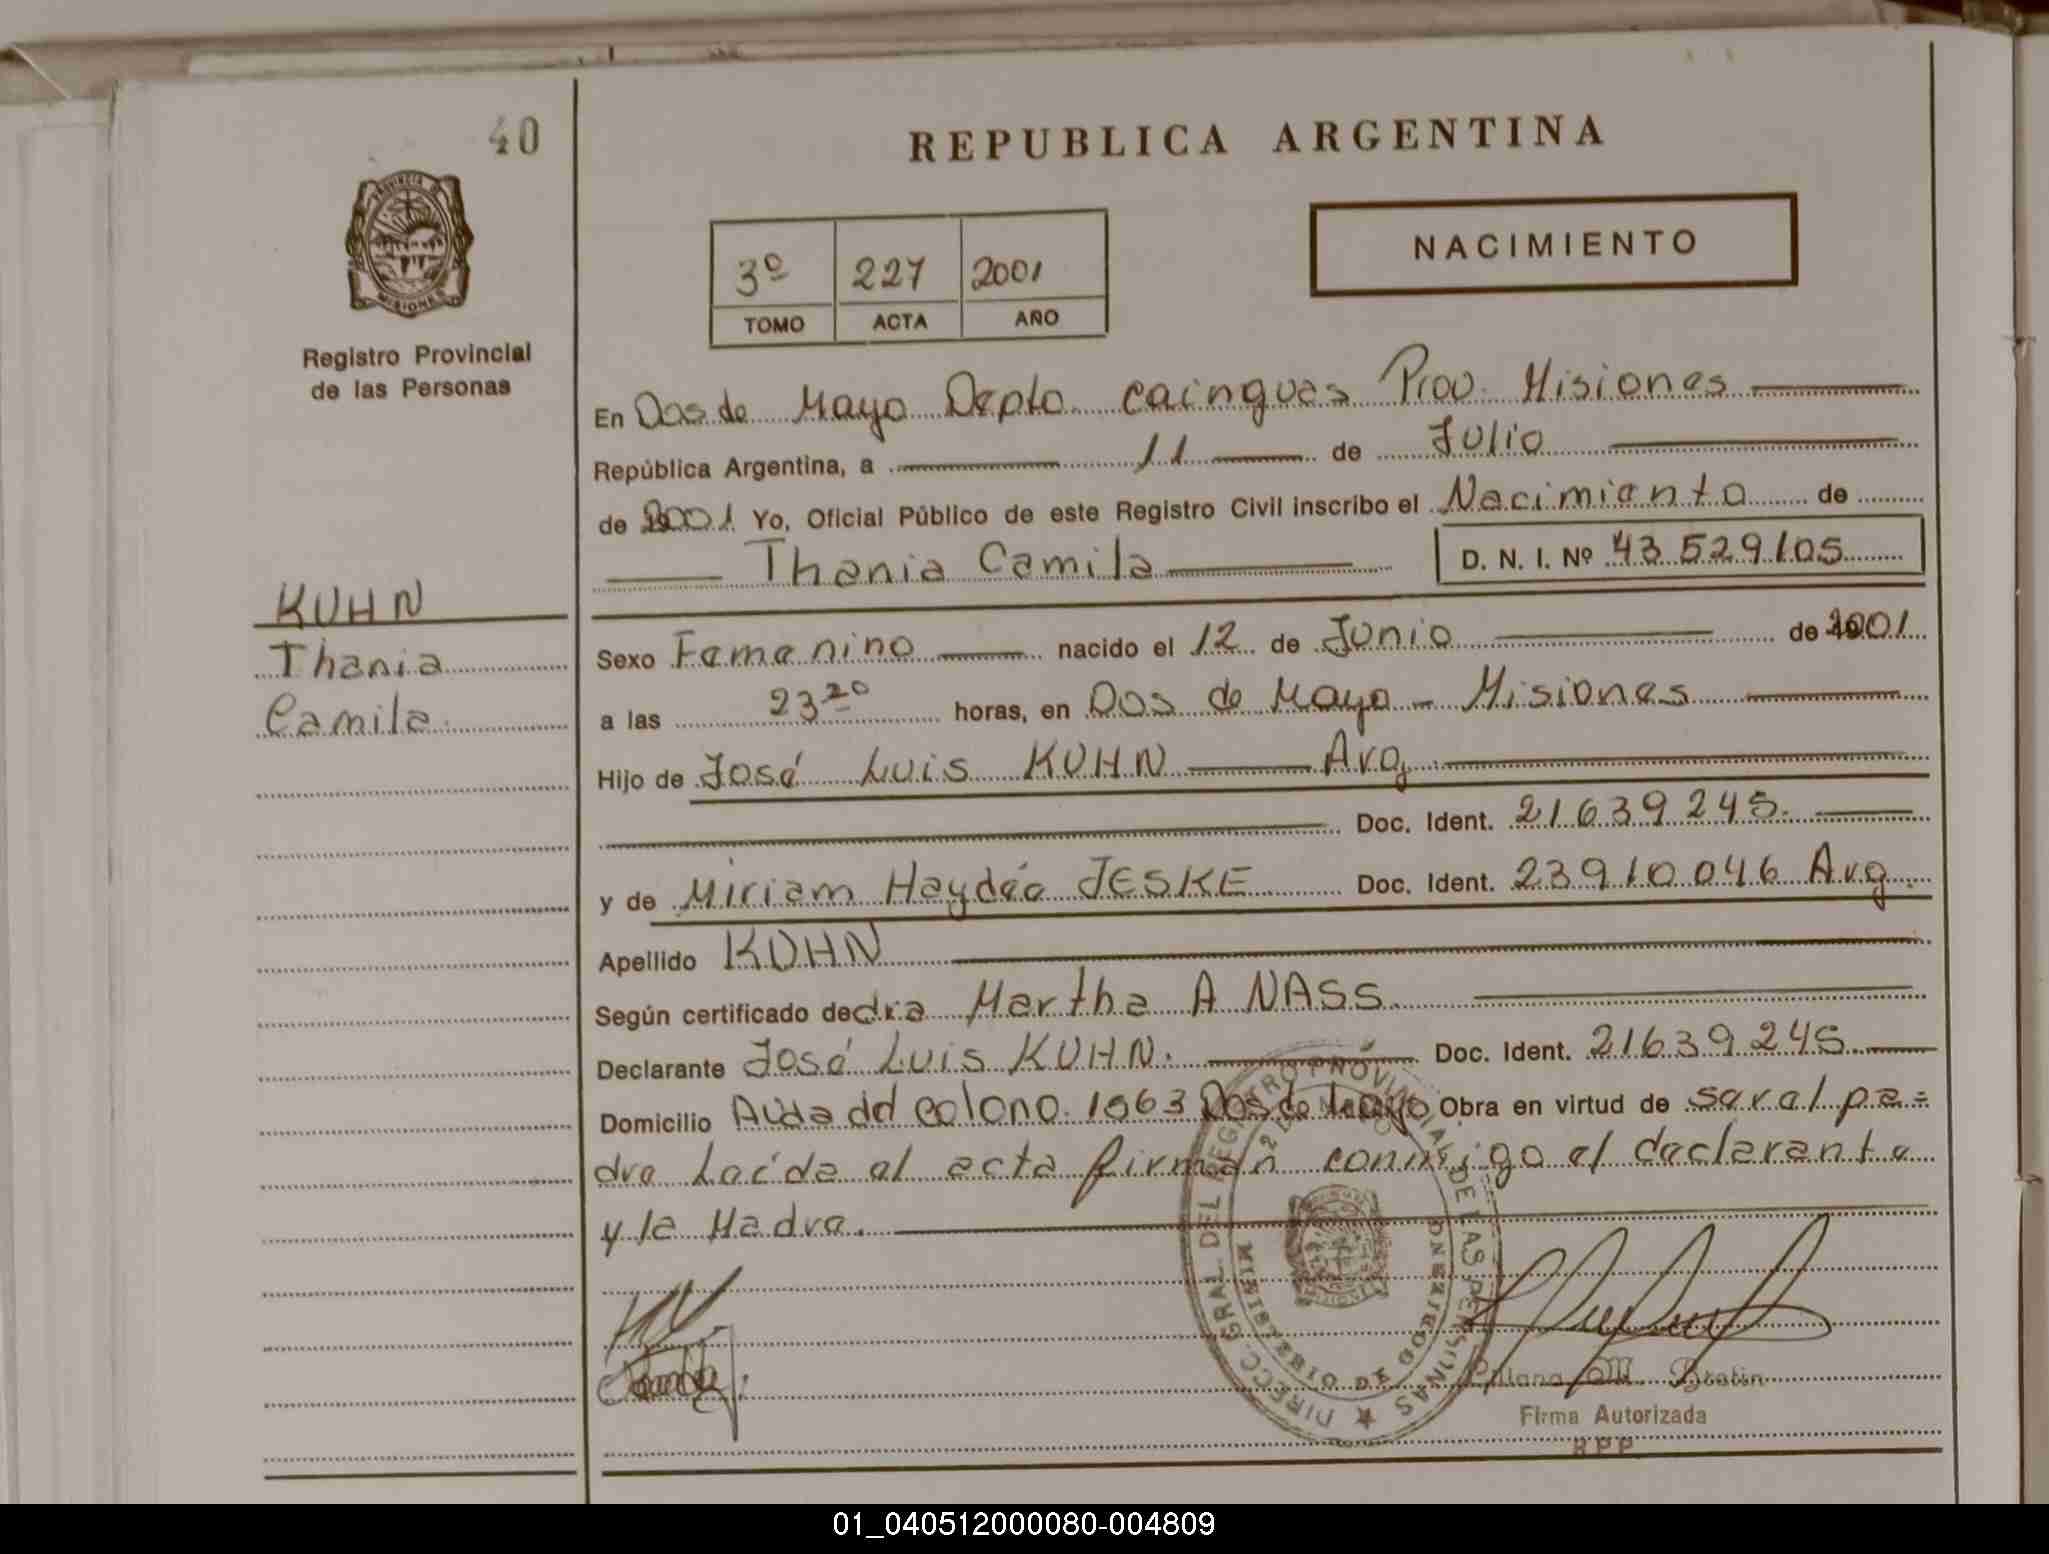 40
REPUBLICA ARGENTINA
PROVINCIA DE
MISIONES
Registro Provincial
de las Personas
NACIMIENTO
3º 227 2001
TOMO ACTA AÑO
En Dos de Mayo Depto. Cainguas Prov. Misiones
República Argentina, a 11 de Julio
de 2001 Yo, Oficial Público de este Registro Civil inscribo el Nacimiento de
Thania Camila D. N. I. Nº 43.529.105
KUHN
Thania
Camila
Sexo Femenino nacido el 12 de Junio de 2001
a las 23 20 horas, en Dos de Mayo - Misiones
Hijo de José Luis KUHN Arg
Doc. Ident. 21639245.
y de Miriam Haydée JESKE Doc. Ident. 23910046 Arg.
Apellido KUHN
Según certificado de dra Martha A NASS
Declarante José Luis KUHN. Doc. Ident. 21639245
Domicilio Avda del colono 1063 Dos de Mayo Obra en virtud de ser el pa=
dre Leída el acta firman conmigo el declarante
y la Madre.
DIRECC. GRAL. DEL REGISTRO PROVINCIAL DE LAS PERSONAS
MINISTERIO DE GOBIERNO
Firma Autorizada
R P P
01_040512000080-004809